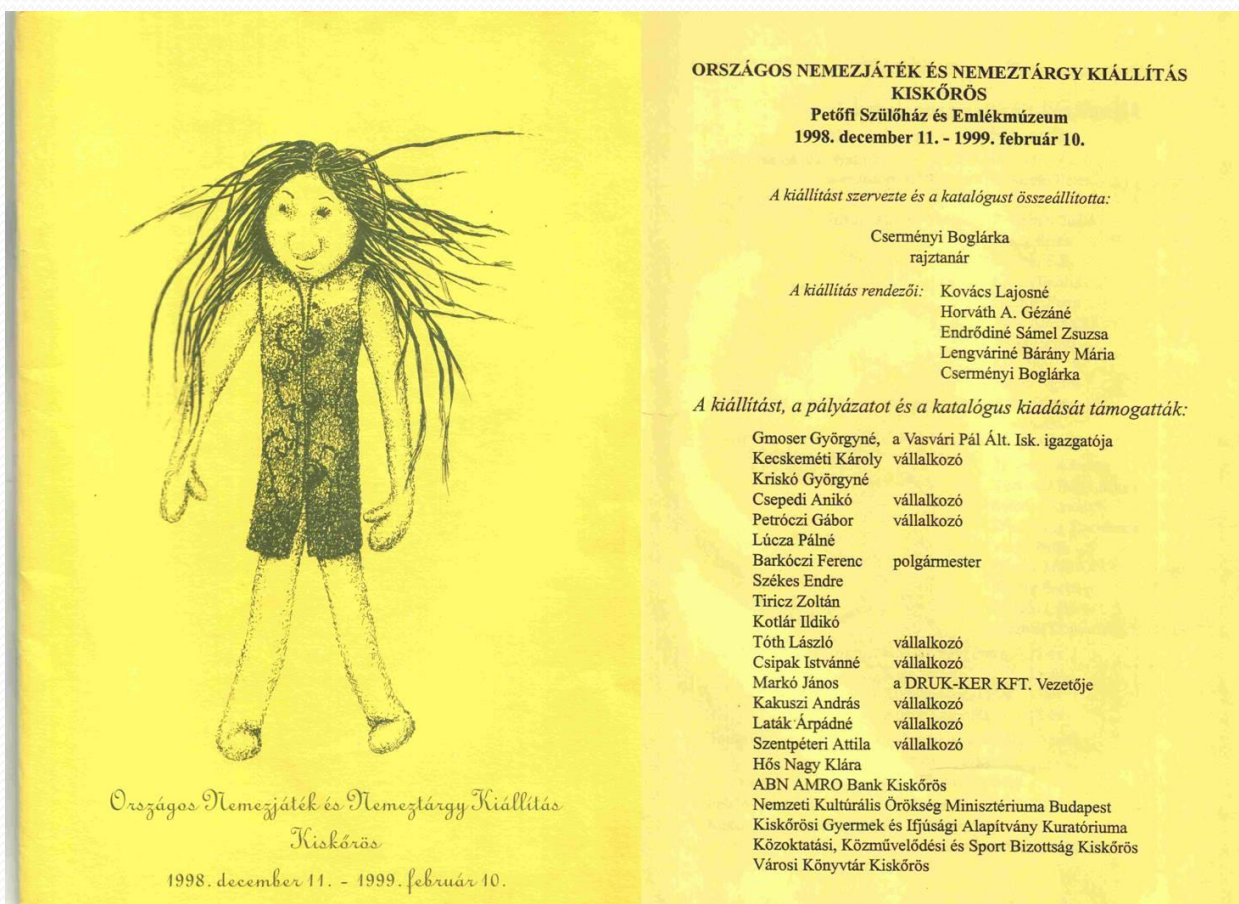 Országos Nemezjáték és Nemeztárgy Kiállítás
Kiskőrös
1998. december 11. - 1999. február 10.
ORSZÁGOS NEMEZJÁTÉK ÉS NEMEZTÁRGY KIÁLLÍTÁS
KISKŐRÖS
Petőfi Szülőház és Emlékmúzeum
1998. december 11. - 1999. február 10.
A kiállítást szervezte és a katalógust összeállította:
Cserményi Boglárka
rajztanár
A kiállítás rendezői: Kovács Lajosné
Horváth A. Gézáné
Endrődiné Sámel Zsuzsa
Lengváriné Bárány Mária
Cserményi Boglárka
A kiállítást, a pályázatot és a katalógus kiadását támogatták:
Gmoser Györgyné, a Vasvári Pál Ált. Isk. igazgatója
Kecskeméti Károly vállalkozó
Kriskó Györgyné
Csepedi Anikó vállalkozó
Petróczi Gábor vállalkozó
Lúcza Pálné
Barkóczi Ferenc polgármester
Székes Endre
Tiricz Zoltán
Kotlár Ildikó
Tóth László vállalkozó
Csipak Istvánné vállalkozó
Markó János a DRUK-KER KFT. Vezetője
Kakuszi András vállalkozó
Laták Árpádné vállalkozó
Szentpéteri Attila vállalkozó
Hős Nagy Klára
ABN AMRO Bank Kiskőrös
Nemzeti Kultúrális Örökség Minisztériuma Budapest
Kiskőrösi Gyermek és Ifjúsági Alapítvány Kuratóriuma
Közoktatási, Közművelődési és Sport Bizottság Kiskőrös
Városi Könyvtár Kiskőrös